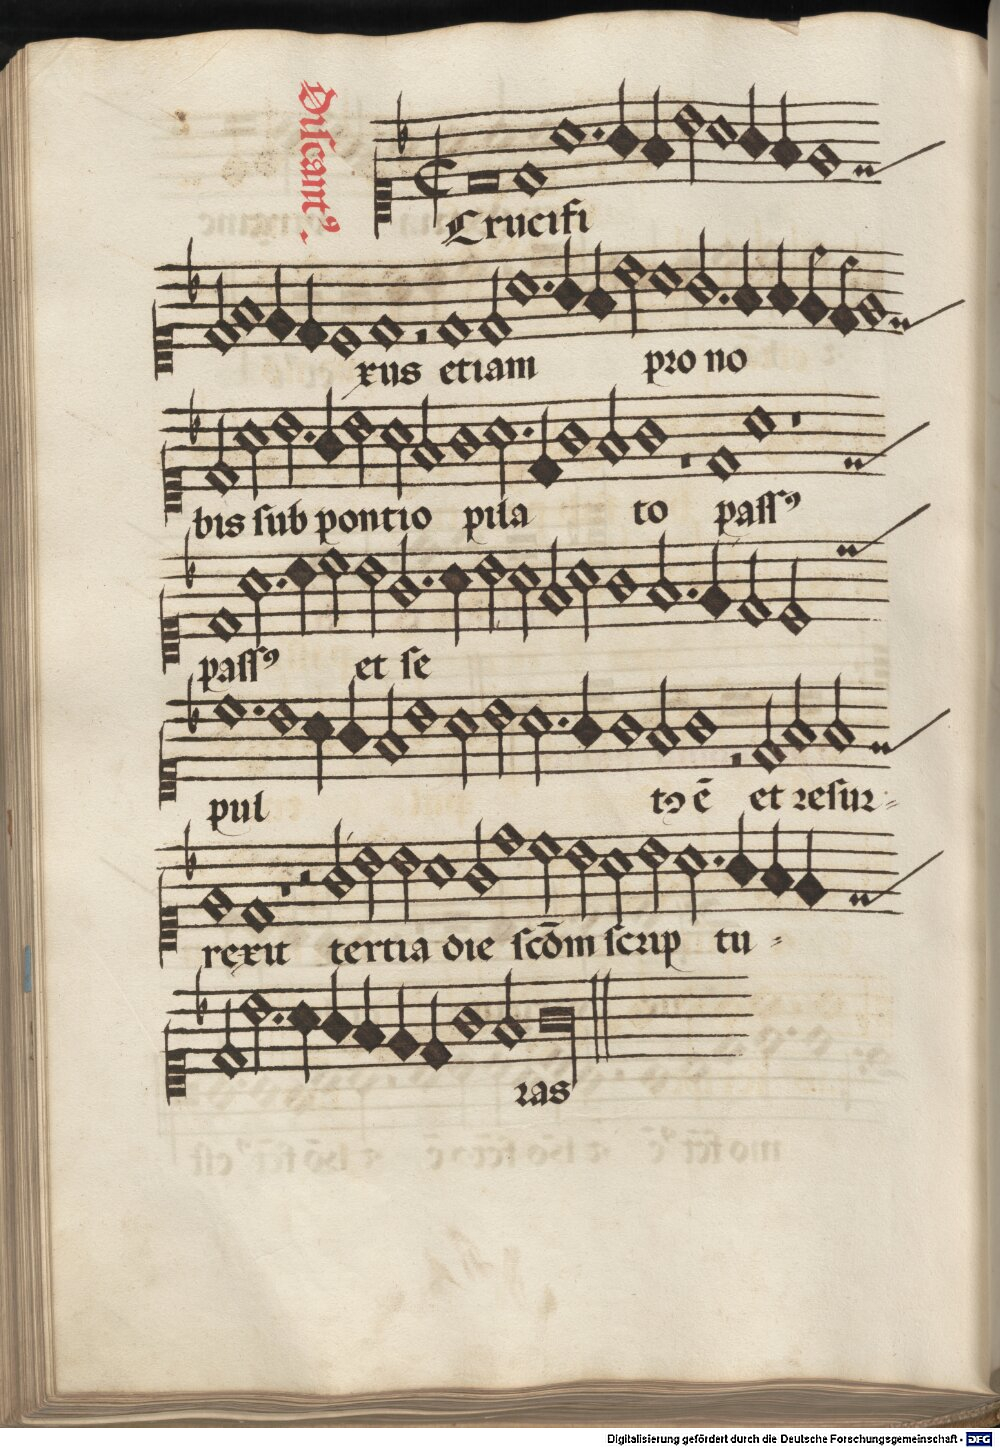 Discantꝰ.
Crucifi
xus etiam pro no
bis sub pontio pila to passꝰ
passꝰ et se
pul tꝰ ē et resur-
rexit tertia die scd̄m scrip tu-
ras
Digitalisierung gefördert durch die Deutsche Forschungsgemeinschaft - DFG